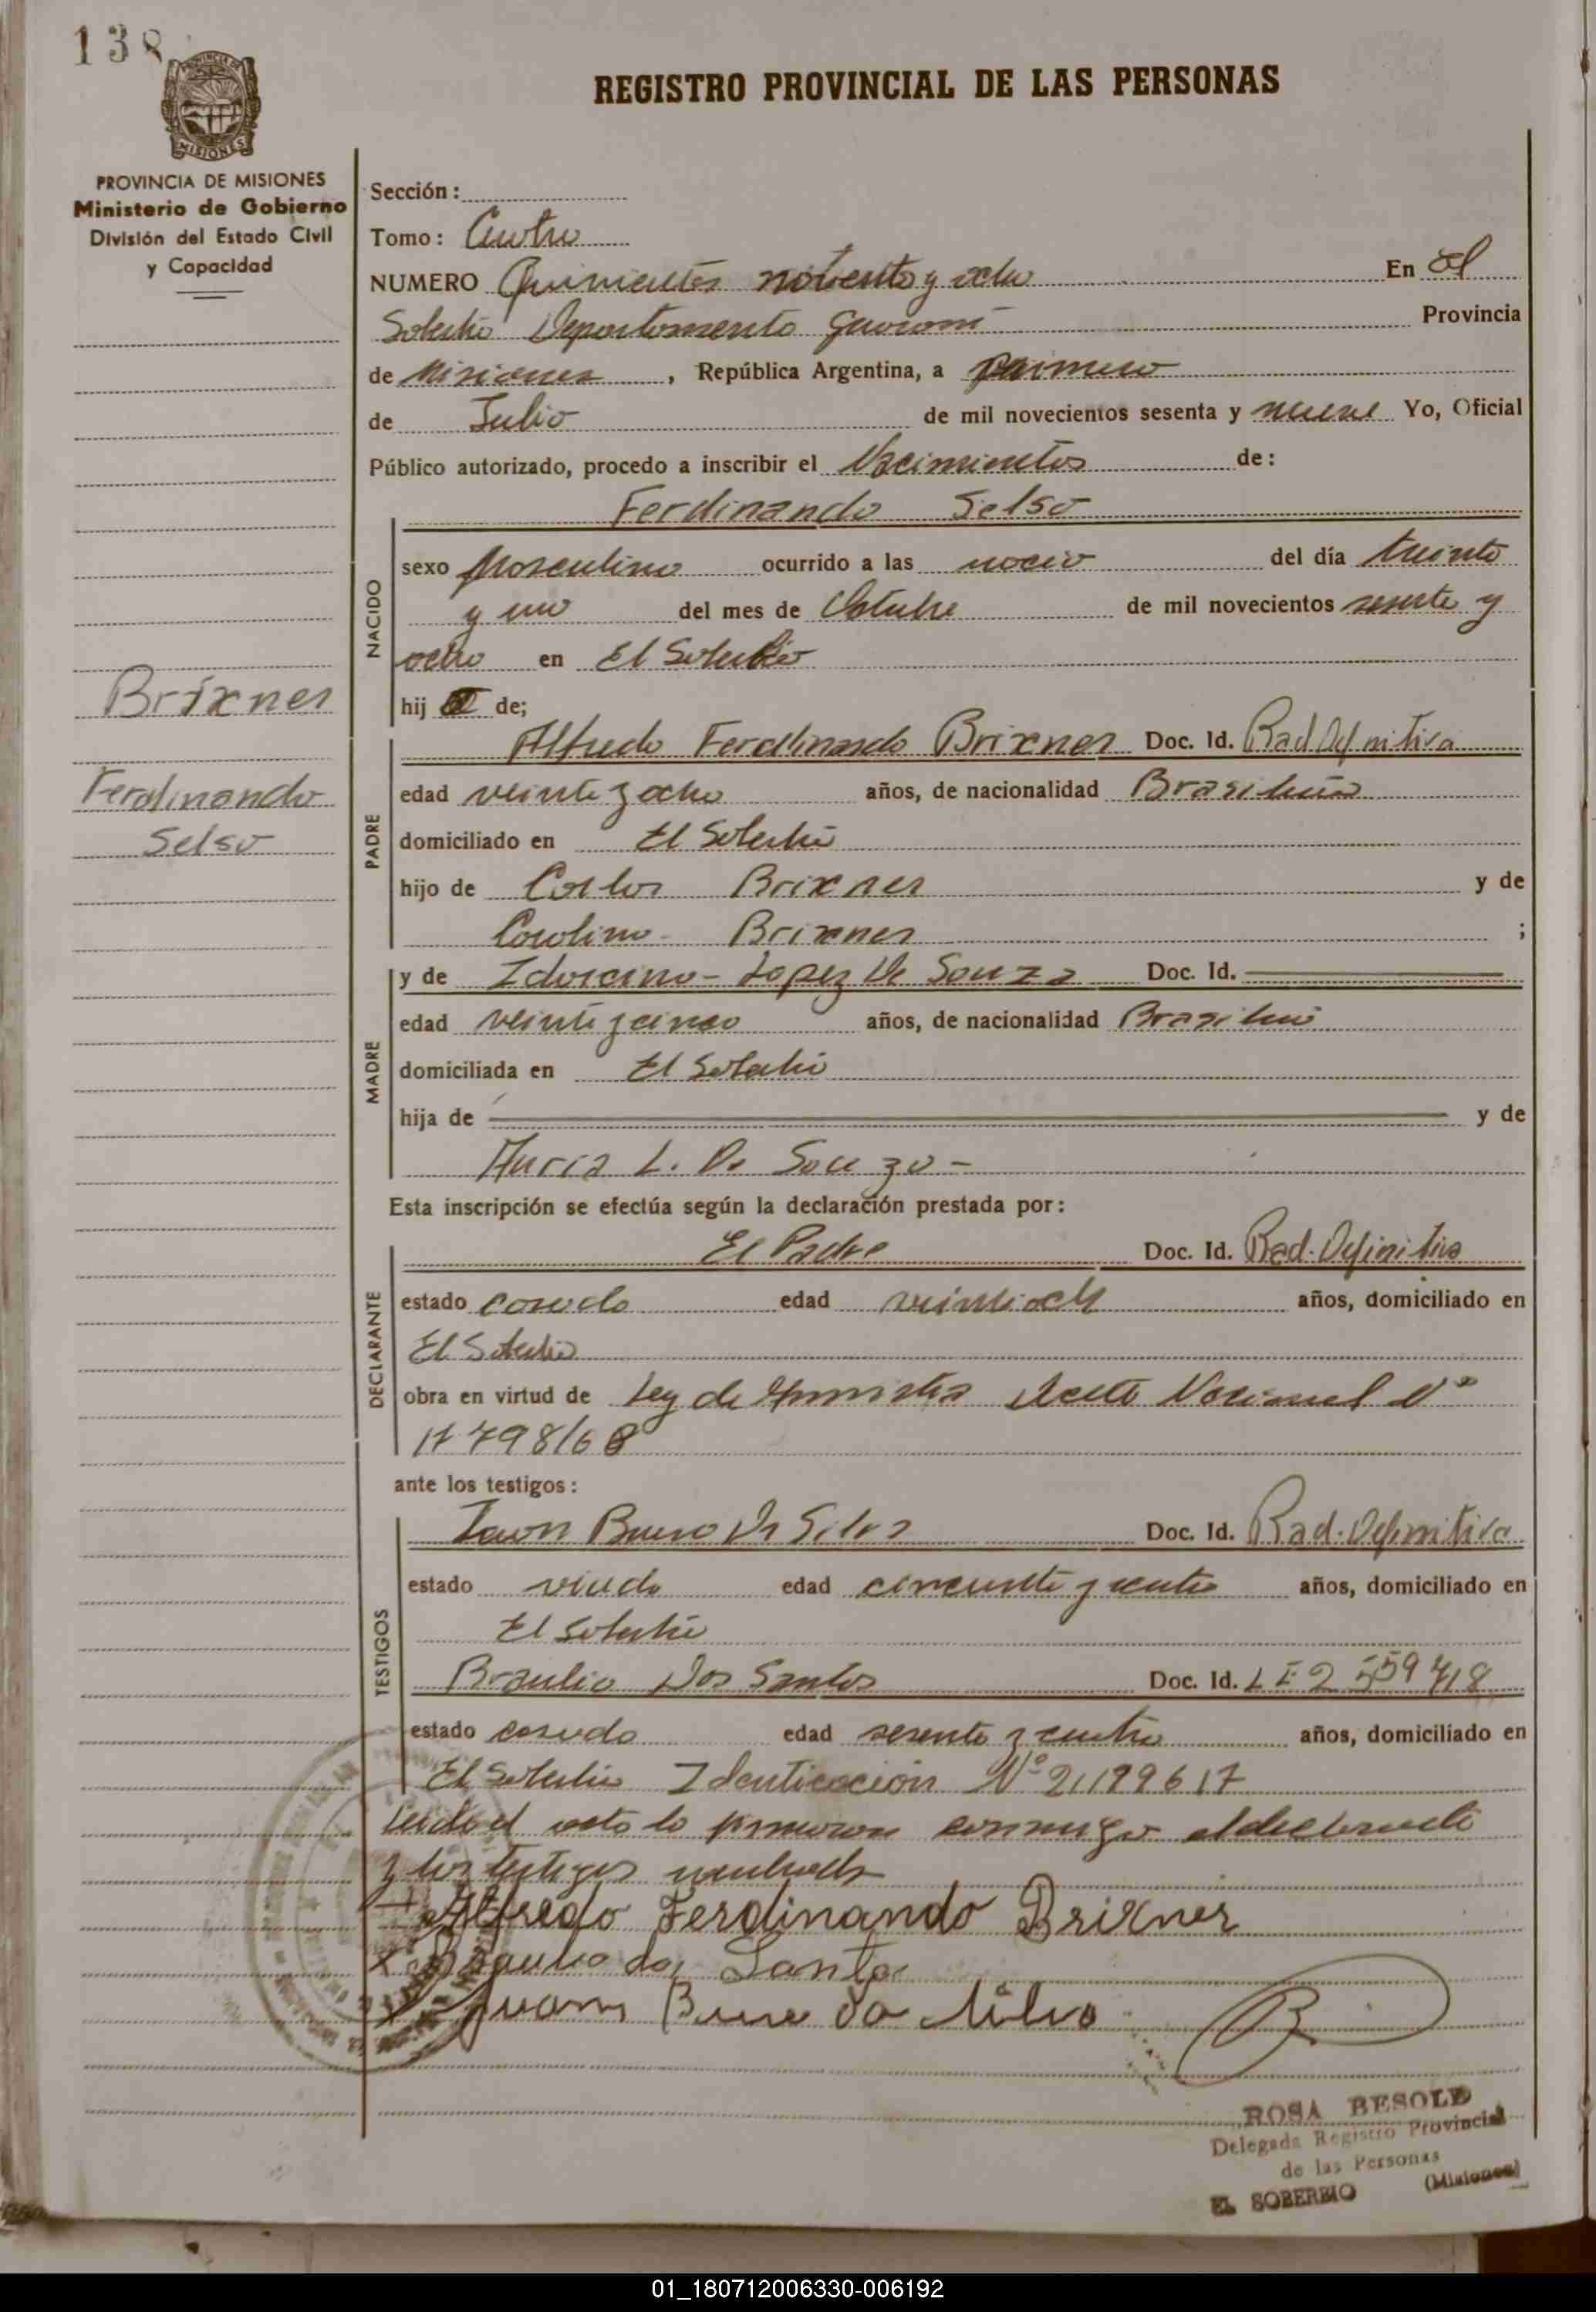 138
PROVINCIA DE MISIONES
REGISTRO PROVINCIAL DE LAS PERSONAS
PROVINCIA DE MISIONES
Ministerio de Gobierno
División del Estado Civil
y Capacidad
Sección:
Tomo: Cuatro
NUMERO Quinientos noventa y ocho En El
Soberbio Departamento Guaraní Provincia
de Misiones, República Argentina, a primero
de Julio de mil novecientos sesenta y nueve Yo, Oficial
Público autorizado, procedo a inscribir el Nacimientos de:
Ferdinando Selso
NACIDO
sexo Masculino ocurrido a las del día treinta
y uno del mes de Octubre de mil novecientos sesenta y
ocho en El Soberbio
hij o de;
Brixner
Ferdinando
Selso
PADRE
Alfredo Ferdinando Brixner Doc. Id. Rad Definitiva
edad veinte y ocho años, de nacionalidad Brasileña
domiciliado en El Soberbio
hijo de Carlos Brixner y de
Carolina Brixner ;
MADRE
y de Idorcina - Lopez De Souza Doc. Id.
edad veinte y cinco años, de nacionalidad Brasileña
domiciliada en El Soberbio
hija de y de
Maria L. De Souza -
Esta inscripción se efectúa según la declaración prestada por:
DECLARANTE
El Padre Doc. Id. Rad. Definitiva
estado casado edad veintiocho años, domiciliado en
El Soberbio
obra en virtud de Ley de Amnistia Decreto Nacional Nº
17798/68
ante los testigos:
TESTIGOS
Juan Bueno Da Silva Doc. Id. Rad. Definitiva
estado viudo edad cincuenta y cuatro años, domiciliado en
El Soberbio
Braulio Dos Santos Doc. Id. L E 2 559 718
estado casado edad sesenta y cuatro años, domiciliado en
El Soberbio Identicación Nº 21199617
Leida el acta la firmaron conmigo el declarante
y los testigos
Alfredo Ferdinando Brixner
X Braulio dos Santos
X Juan Bueno da Silva
ROSA BESOLD
Delegada Registro Provincial
de las Personas
EL SOBERBIO (Misiones)
01_180712006330-006192